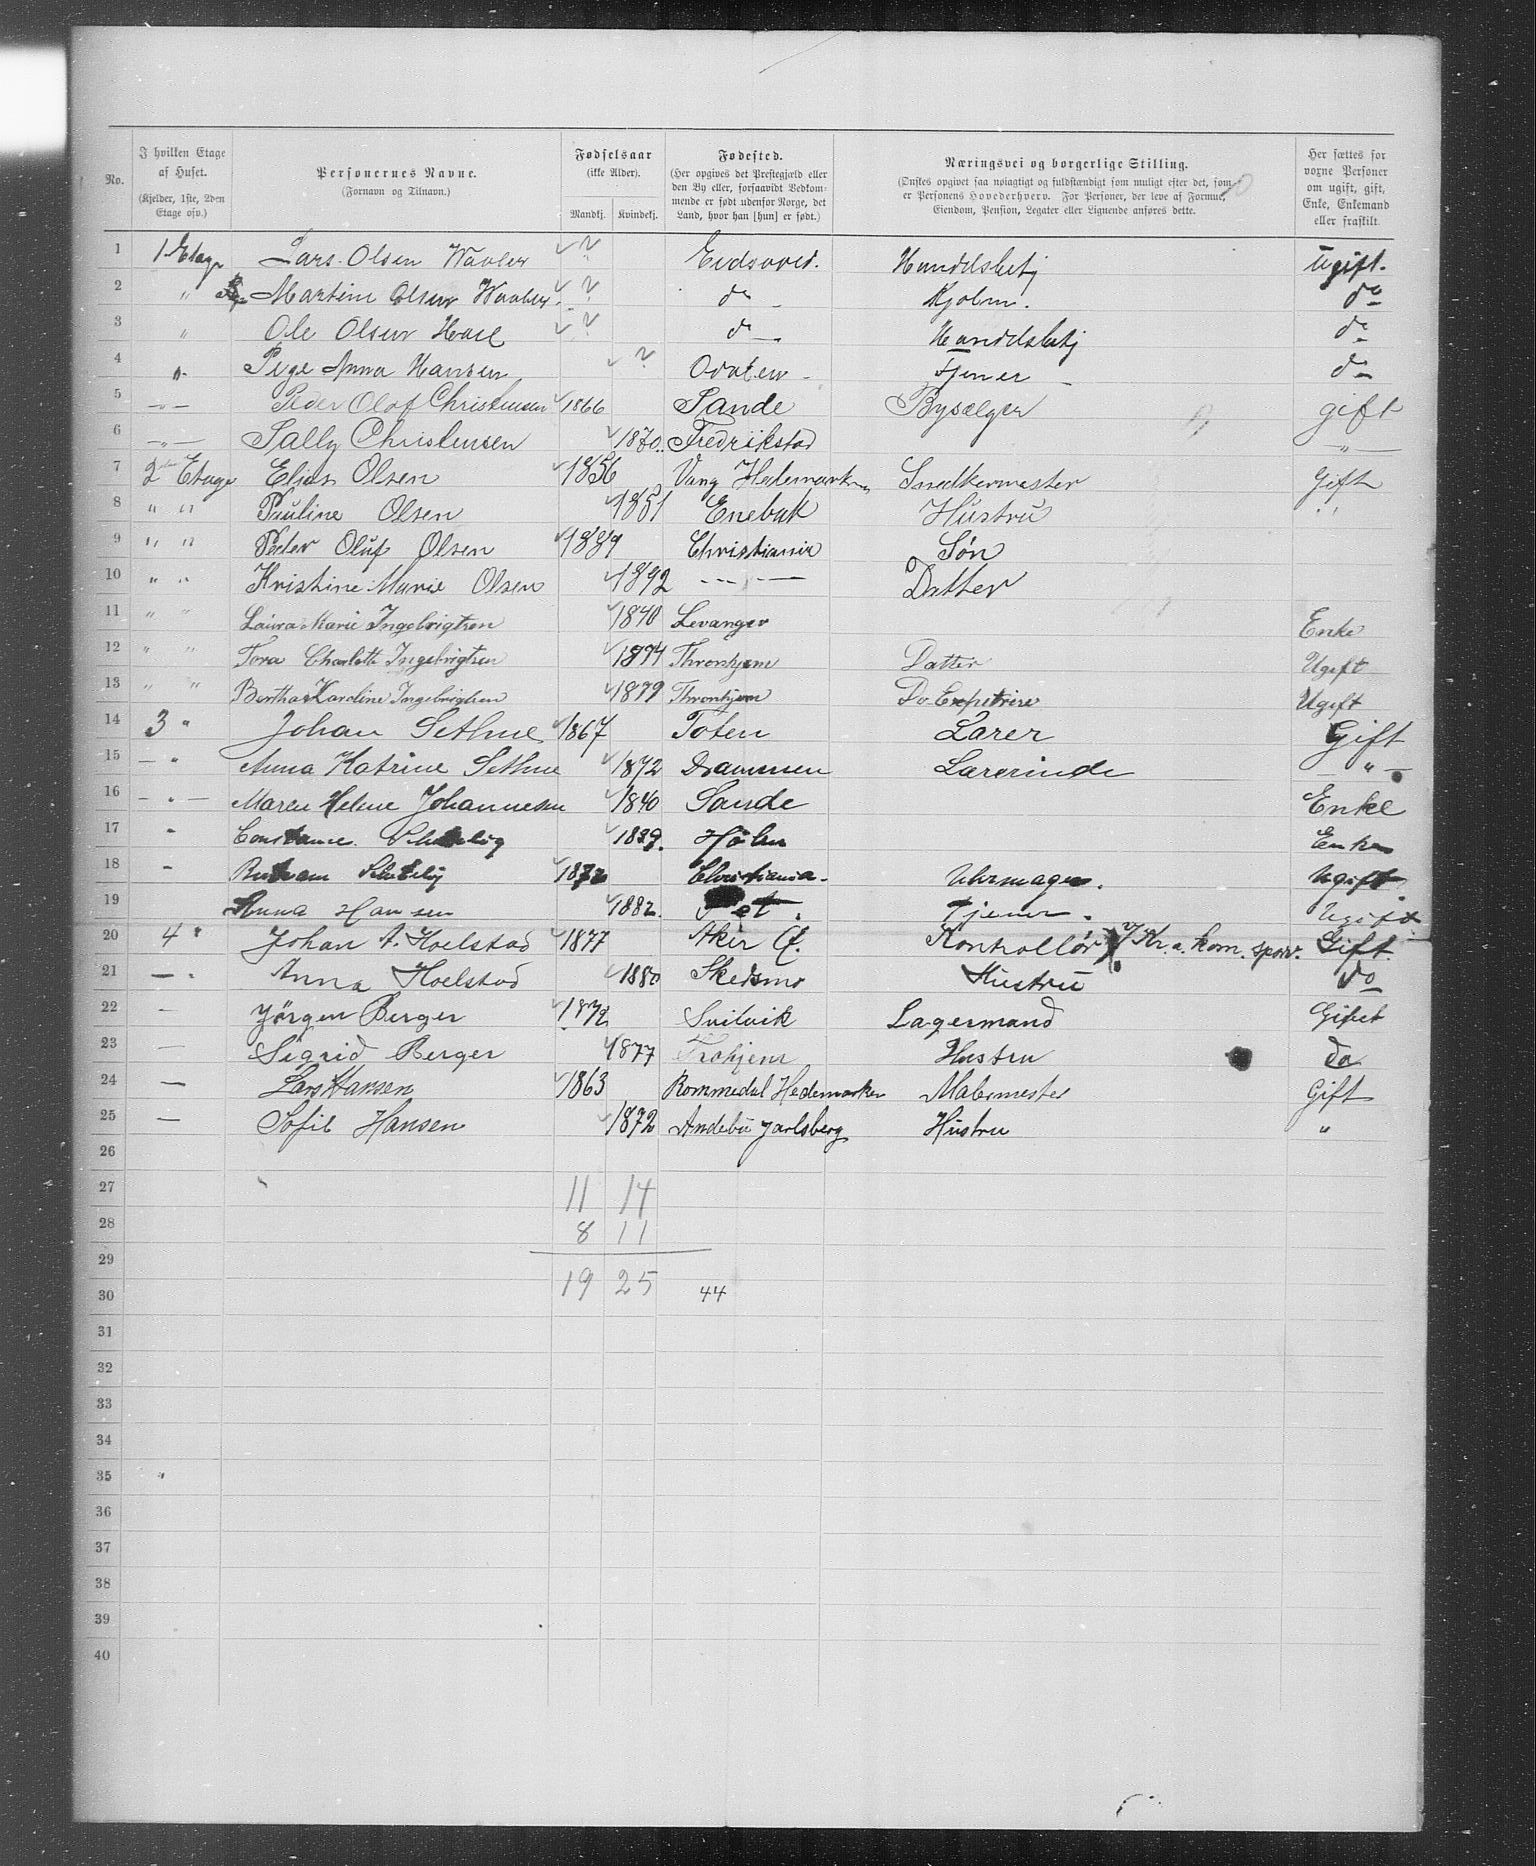 No. | I hvilken Etage af Huset. (Kjelder, 1ste, 2den Etage osv.) | Personernes Navne. (Fornavn og Tilnavn.) | Fødselsaar (ikke Alder). Mandkj. Kvindekj. | Fødested. (Her opgives det Prestegjæld eller den By eller, forsaavidt Vedkommende er født udenfor Norge, det Land, hvor han [hun] er født.) | Næringsvei og borgerlige Stilling. (Ønskes opgivet saa nøiagtigt og fuldstændigt som muligt efter det, som er Personens Hovederhverv. For Personer, der leve af Formue, Eiendom, Pension, Legater eller Lignende anføres dette.) | Her sættes for voxne Personer om ugift, gift, Enke, Enkemand eller fraskilt
1 1 Etage Lars Olsen ? Eidsvold. Ugift.
2 " Martin Olsen ? do do
3 " Ole Olsen ? do do
4 " Pige Anna Hansen ? Odalen Tjener do
5 — " — Peder Olaf Christensen 1866 Sande Bysælger gift
6 — " — Sally Christensen 1870 Fredrikstad "
7 2den Etage Elias Olsen 1856 Vang Hedemarken Snedkermester Gift
8 " " Pauline Olsen 1851 Enebak Hustru " "
9 " " Peder Oluf Olsen 1889 Christiania Søn
10 " " Kristine Marie Olsen 1892 — " — Datter
11 " " Laura Marie Ingebrigtsen 1840 Levanger Enke
12 " " Tora Charlotte Ingebrigtsen 1874 Thronhjem Datter Ugift
13 " " Bertha Karoline Ingebrigtsen 1879 Thronhjem Do Ugift
14 3 " Johan Sethne 1867 Toten Lærer Gift
15 — " Anna Katrine Sethne 1872 Drammen Lærerinde — " —
16 — " — Maren Helene Johannesen 1840 Sande Enke
17 " Constance 1839. Enke
18 — Christiania Uhrmager. Ugift
19 Anna Hansen 1882. Tjener. Ugift
20 4 " Johan A. Hoelstad 1877 Aker Kontrollør V Kr. a. kom. sporv. Gift
21 — " Anna Hoelstad 1880 Skedsmo Hustru do
22 — Jørgen Berger 1872 Svelvik Lagermand Gift
23 — Sigrid Berger 1877 Trohjem Hustru do
24 — Lars Hansen 1863 Rommedal Hedemarken Malermester Gift
25 — Sofie Hansen 1872 Andebu Jarlsberg Hustru "
26
27 11 14
28 8 11
29
30 19 25 44
31
32
33
34
35 "
36
37
38
39
40